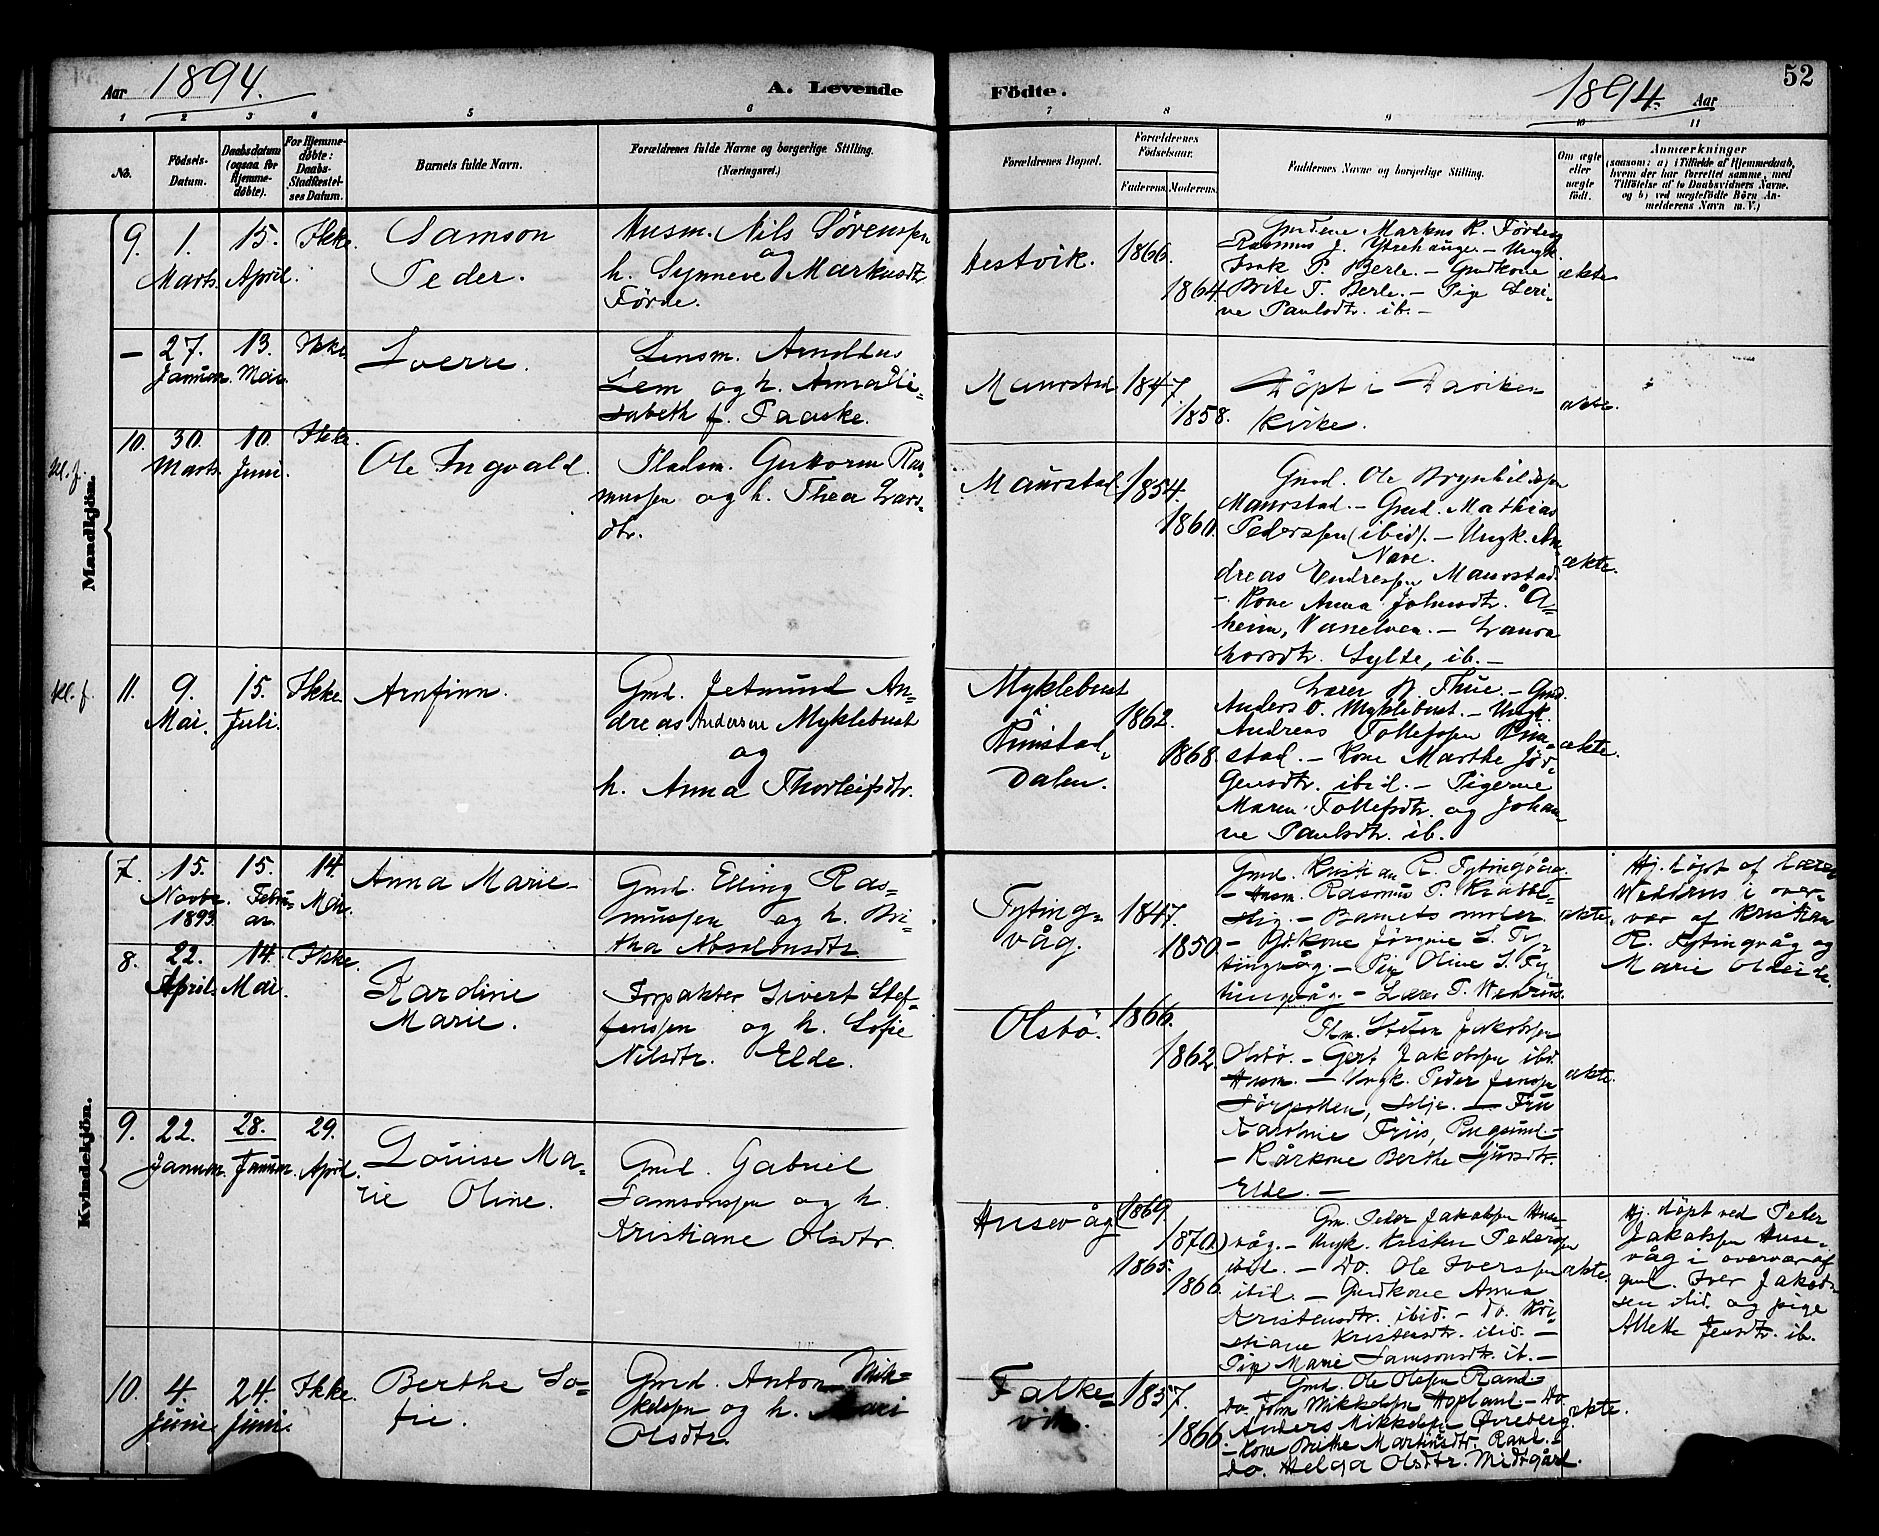 Aar 1894. A. Levende
Födte. 1894. Aar 52
1 2 3 4 5 6 7 8 9 10 11
No.
Födsels-
Datum.
Daabsdatum
(ogsaa for
Hjemme-
döbte).
For Hjemme-
döbte:
Daabs-
Stadfæstel-
ses Datum.
Barnets fulde Navn.
Forældrenes fulde Navne og borgerlige Stilling.
(Næringsvei.)
Forældrenes Bopæl.
Forældrenes
Födselsaar.
Faderens. Moderens.
Faddernes Navne og borgerlige Stilling.
Om ægte
eller
uægte
födt.
Anmærkninger
(saasom: a) i Tilfælde af Hjemmedaab,
hvem der har forrettet samme, med
Tilföielse af to Daabsvidners Navne,
og b) ved uægtefödte Börn An-
melderens Navn m. V.)
Mandkjön.
9. 1. Marts. 15. April. Ikke.
Samson
Peder.
Husm. Nils Sörenssen
og
h. Synneve Markusdt.
Förde.
Hestvik. 1866. 1864
Gmdene Markus R. Förde og
Rasmus J. Ytrehauge. – Ungk.
Isak P. Berle. – Gmdkone
Brite T. Berle. – Pige Seri-
ne Paulsdtr. ib. –
ækte
– 27. Januar. 13. Mai. Ikke
Sverre.
Lensm. Arnoldus
Lem og h. Anna Eli-
sabeth f. Taaske.
Maurstad 1847. 1858.
Döpt i Daviken
Kirke.
ækte.
Kl. f.
10. 30. Marts. 10. Juni. Ikke.
Ole Ingvald.
Pladsm. Guttorm Ras-
mussen og h. Thea Lars-
dtr.
Maurstad 1854. 1860.
Gmd. Ole Brynhildssen
Maurstad. – Gmd. Mathias
Pederssen (ibid). – Ungk. An-
Nave.
dreas Endressen Maurstad.
– Kone Anna Johnsdtr. Å-
heim, Vanelven. – Laura
Larsdtr. Sylte, ib. –
ækte.
Kl. f.
11. 9. Mai. 15. Juli. Ikke.
Arnfinn.
Gmd. Jetmund An-
dreas Andersen Myklebust
og
h. Anna Thorleifsdtr.
Myklebust
i
Rimstad-
dalen.
1862. 1868.
Lærer N. Thue. – Gmd.
Anders O. Myklebust. – Ungk.
Andreas Tollefssen Rim-
stad. – Kone Marthe Jör-
gensdtr. ibid. – Pigerne
Maren Tollefsdtr. og Johan-
ne Paulsdtr. ib.
ækte.
Kvindekjön.
7. 15. Novbr. 1893. 15. Febru-
ar. 14. Mai.
Anna Marie
Gmd. Elling Ras-
mussen og h. Bri-
tha Absalonsdtr.
Fyting-
våg.
1847. 1850.
Gmd. Kristian R. Fytingvåg.
– Husm. Rasmus P.
– Barnets moder.
– Gdkone Jörgine S. Fy-
tingvåg. – Pige Oline S. Fy-
tingvåg. – Lærer P. Wedrus.
ækte.
Hj. döpt af Lærer
Wedrus i over-
vær af Kristian
R. Fytingvåg og
Marie Oldeide.
8. 22. April. 14. Mai. Ikke.
Karoline
Marie.
Forpakter Sivert Stef-
fenssen og h. Sofie
Nilsdtr. Elde.
Olsbö. 1866. 1862.
Steten Jakobssen
Olsbö. – Gert Jakobssen ibd.
Husm. – Ungk. Peder Jenssen
Sörpollen, Selje. – Fru
Karoline Friis, Rugsund. –
– Kårkone Berthe Sjursdtr.
Elde. –
ækte.
9. 22. Januar. 28. Januar. 29. April.
Louise Ma-
rie Oline.
Gmd. Gabriel
Samsonssen og h.
Kristiane Olsdtr.
Husevåg 1869. 1870 1865. 1866
Gm. Peder Jakobssen Huse-
våg. – Ungk. Kristen Pederssen
ibid. – Do. Ole Iverssen
ibid. – Gmdkone Anna
Kristensdtr. ibid. – do. Kri-
stiane Kristensdtr. ibid. –
Pige Marie Samsonsdtr. ib. –
ækte.
Hj. döpt ved Peder
Jakobssen Huse-
våg i overvær af
gmd. Iver Jakob-
sen ibid. og pige
Alette Jensdtr. ib.
10. 4. Juni. 24. Juni. Ikke.
Berthe So-
fie.
Gmd. Anton Mik-
kelssen og h. Mari
Olsdtr.
Falke-
vik.
1857. 1866.
Gmd. Ole Olssen Rand. –
Do. John Mikkelssen Hopland. – Do.
Anders Mikkelssen Övreberg.
– Kone Brithe Martinusdtr. Rand. –
Do. Helga Olsdtr. Midtgård.
ækte.